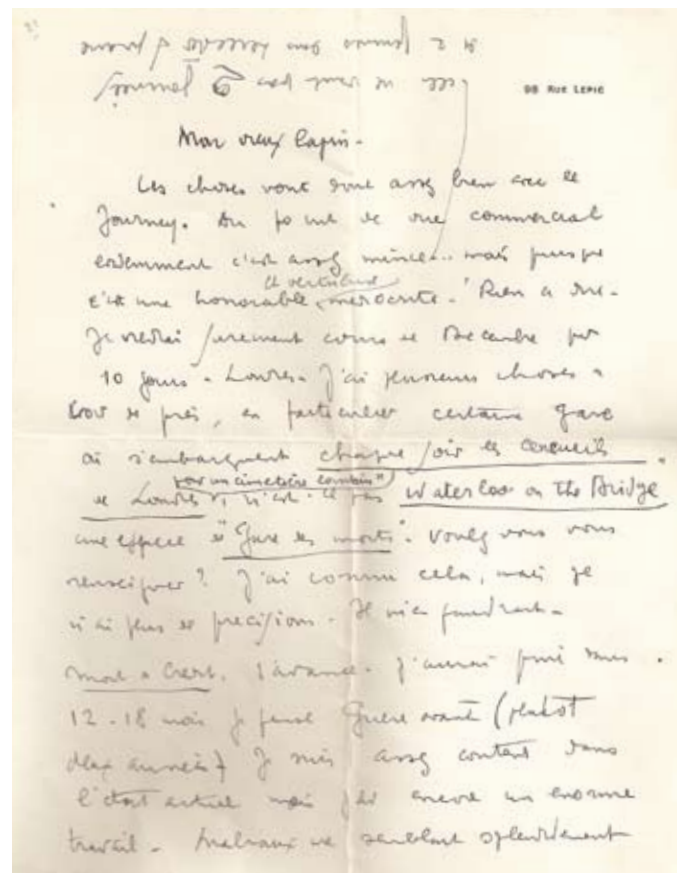 98 RUE LEPIC
Mon vieux lapin -
Les choses vont donc assez bien avec le
Journey. Au point de vue commercial
evidemment c'est assez mince... mais puisque
c'est une honorable mediocrité - Rien a dire -
Je viendrai surement courant Decembre pr
10 jours a Londres. J'ai plusieurs choses a
voir de près, en particulier certaine gare
où s'embarquent chaque soir les cercueils
de Londres pour un cimetière lointain" n'est-ce pas Waterloo on the Bridge
une espece de "Gare des morts". Voulez vous vous
renseigner? J'ai connu cela, mais je
n'ai plus de precisions. Il m'en faudrait -
. J'aurai fini dans
12 - 18 mois je pense guere avant (plutot
deux années) Je suis assez content dans
l'état actuel mais j'ai encore un enorme
travail - semblant splendidement